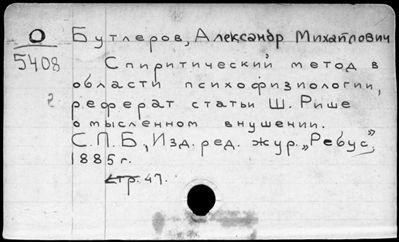 О Бутлеров, Александр Михайлович
5408 Спиритический метод в
области психофизиологии,
реферат статьи Ш. Рише
о мысленном внушении.
С.П.Б, Изд. ред. жур. „Ребус",
1885 г.
стр. 47.